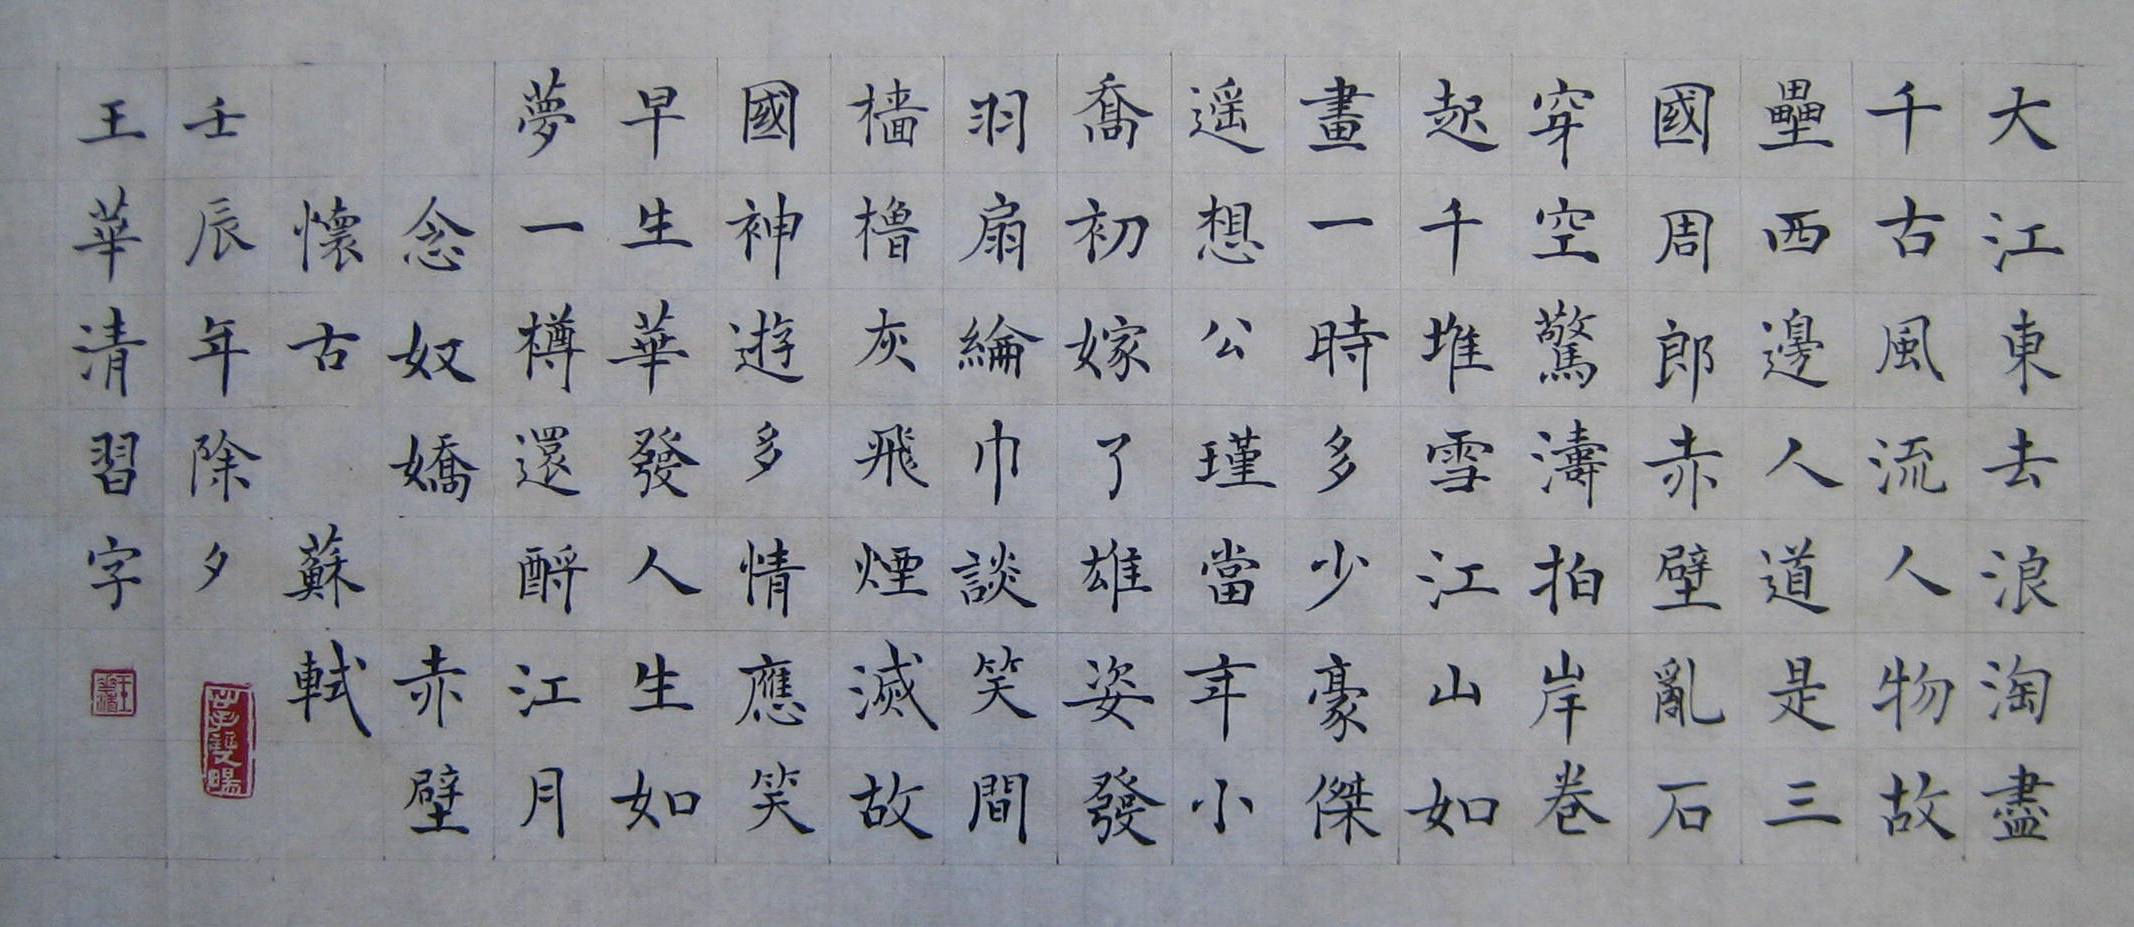 大江東去浪淘盡
千古風流人物故
壘西邊人道是三
國周郎赤壁亂石
穿空驚濤拍岸卷
起千堆雪江山如
畫一時多少豪傑
遥想公瑾當年小
喬初嫁了雄姿發
羽扇綸巾談笑間
檣櫓灰飛煙滅故
國神遊多情應笑
早生華發人生如
夢一樽還酹江月
念奴嬌 赤壁
懷古 蘇軾
壬辰年除夕
王華清習字